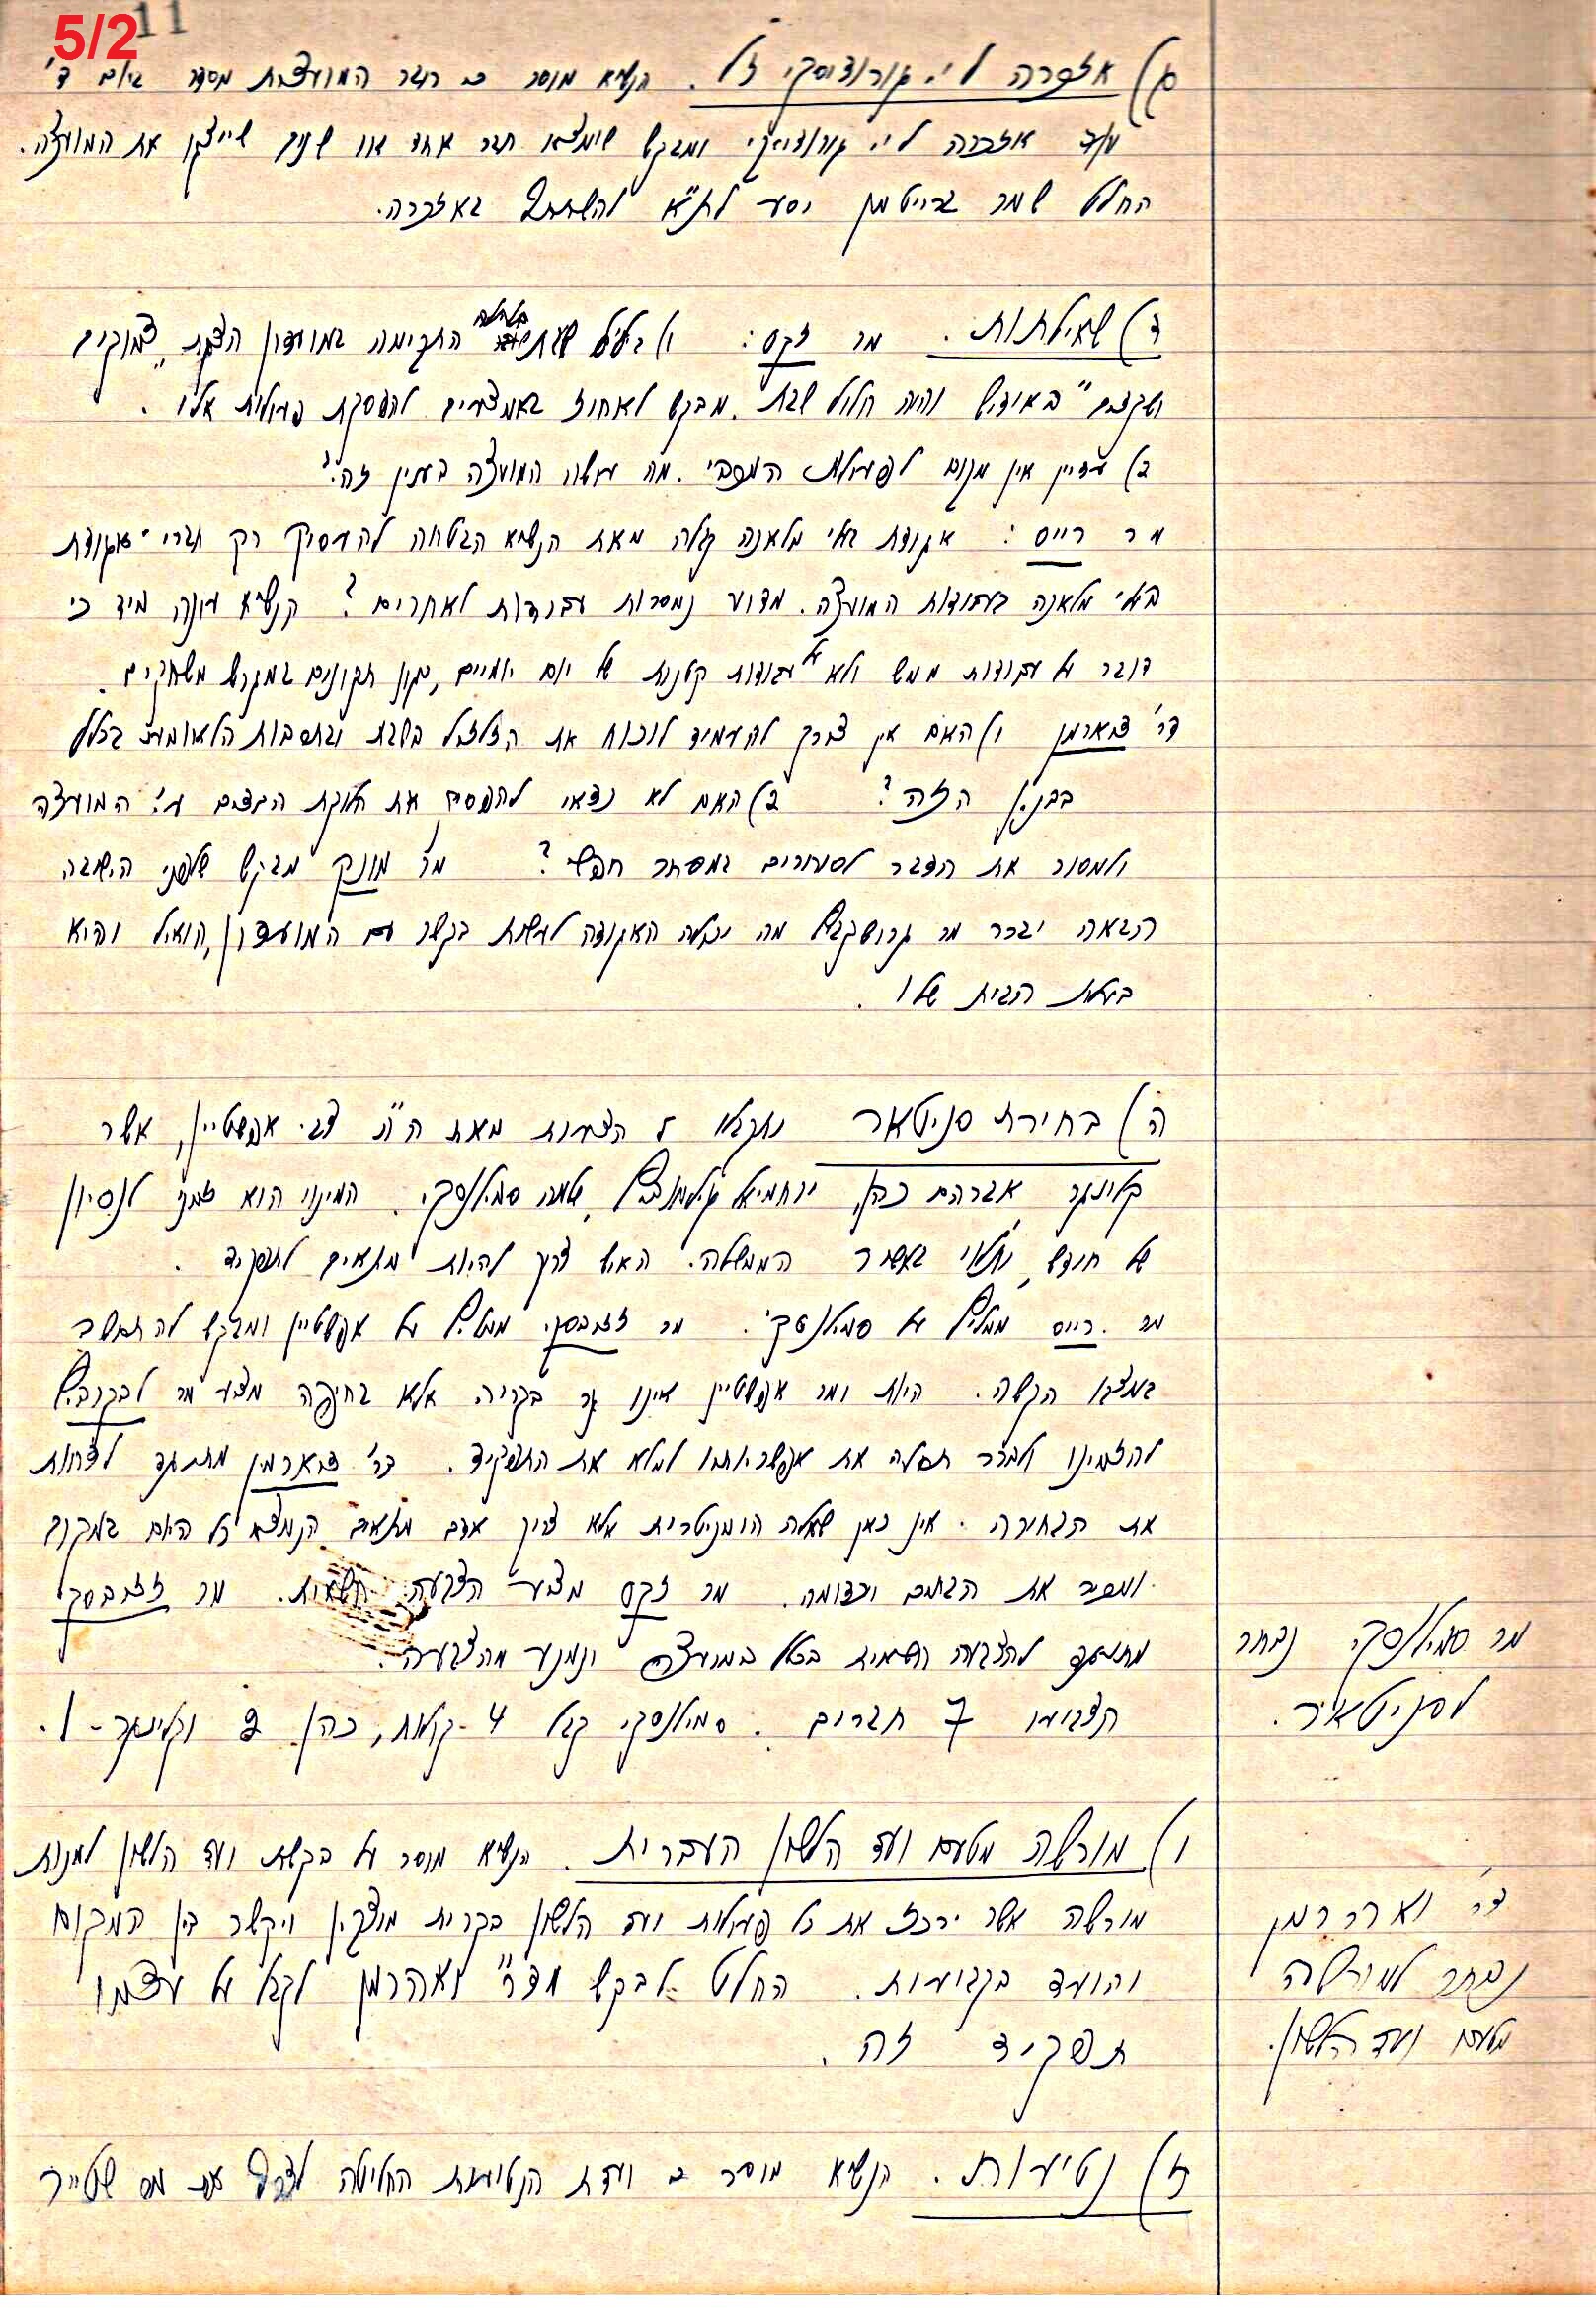 5/2
11
ג) אזכרה לי. גורודיסקי ז"ל. הנשיא מוסר כי חבר המועצות מסדר ביום ד'
אזכרה לי. גורודיסקי ומבקש שימצאו חבר אחד או שנים שייצגו את המועצה.
החלט שמר ברייטמן יסע לת"א להשתתף באזכרה.
ד) שאילתות. מר זקס: 1) בליל שבת התקימה במועדון הצגת
באידיש והיה חלול שבת. מבקש לאחוז באמצעים להפסקת פעולות אלו.
2) עדיין אין מקום לפעולות המכבי. מה עושה המועצה בענין זה?
מר רייס: אגודת בעלי מלאכה קבלה מאת הנשיא הבטחה להעסיק רק חברי אגודת
בעלי מלאכה בעבודות המועצה. מדוע נמסרות עבודות לאחרים? הנשיא עונה מיד כי
דובר על עבודות ממש ולא על עבודות קטנות של יום יומיים, כגון תקונים במגרש משחקים.
ד"ר 1) האם אין צורך להעמיד לוכוח את הזלזול בשבת ובתרבות הלאומית בכלל
בבנין הזה? 2) האם לא כדאי להפסיק את חלוקת הביצים ע"י המועצה
ולמסור את הדבר לסוחרים במסחר חפשי? מר מונק מבקש שלפני הישיבה
הבאה יברר מר גרושקביץ מה יכולה האגודה לעשות בקשר עם המועדון, הואיל והיא
בעלת הבית שלו.
ה) בחירת סניטאר נתקבלו 5 הצעות מאת ה"ה צבי אפשטיין, אשר
קלינגר, אברהם כהן, ירחמיאל קלמנוביץ, שלמה סמילנסקי. המינוי הוא זמני לנסיון
של חודש, ותלוי באשור הממשלה. האיש צריך להיות מתאים לתפקיד.
מר רייס ממליץ על סמילנסקי. מר זזובסקי ממליץ על אפשטיין ומבקש להתחשב
במצבו הקשה. היות ומר אפשטיין אינו גר בקריה אלא בחיפה מציע מר לבקוביץ
להזמינו ולברר תחילה את אפשרויותו למלא את התפקיד. ד"ר מתנגד לדחות
את הבחירה. אין כאן שאלה הומניטרית אלא צריך אדם מתאים הנמצא כל היום במקום
ומכיר את הבתים וכדומה. מר זקס מציע הצבעה חשאית. מר זזובסקי
מתנגד להצבעה חשאית בכלל במועצה ונמנע מהצבעה.
הצביעו 7 חברים. סמילנסקי קבל 4 קולות, כהן 2 וקלינגר - 1.
מר סמילנסקי נבחר
לסניטאר.
ו) מורשה מטעם ועד הלשון העברית. הנשיא מוסר על בקשת ועד הלשון למנות
מורשה אשר ירכז את כל פעולות ועד הלשון בקרית מוצקין ויקשר בין המקום
והועד בקביעות. החלט לבקש מד"ר וואהרמן לקבל על עצמו
תפקיד זה.
ד"ר וואהרמן
נבחר למורשה
מטעם ועד הלשון.
ז) נטיעות. הנשיא מוסר כי ועדת הנטיעות החליטה לצרף את מר שטייר